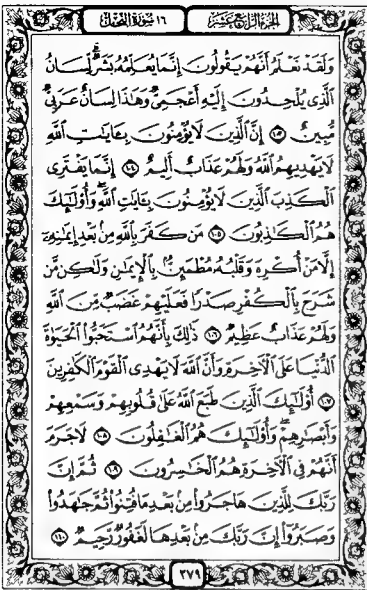 الجزء الرابع عشر
١٦ سورة النحل
وَلَقَدْ نَعْلَمُ أَنَّهُمْ يَقُولُونَ إِنَّمَا يُعَلِّمُهُ بَشَرٌ لِّسَانُ
ٱلَّذِى يُلْحِدُونَ إِلَيْهِ أَعْجَمِىٌّ وَهَٰذَا لِسَانٌ عَرَبِىٌّ
مُّبِينٌ ١٠٣ إِنَّ ٱلَّذِينَ لَا يُؤْمِنُونَ بِـَٔايَٰتِ ٱللَّهِ
لَا يَهْدِيهِمُ ٱللَّهُ وَلَهُمْ عَذَابٌ أَلِيمٌ ١٠٤ إِنَّمَا يَفْتَرِى
ٱلْكَذِبَ ٱلَّذِينَ لَا يُؤْمِنُونَ بِـَٔايَٰتِ ٱللَّهِ وَأُو۟لَٰٓئِكَ
هُمُ ٱلْكَٰذِبُونَ ١٠٥ مَن كَفَرَ بِٱللَّهِ مِنۢ بَعْدِ إِيمَٰنِهِۦٓ
إِلَّا مَنْ أُكْرِهَ وَقَلْبُهُۥ مُطْمَئِنٌّۢ بِٱلْإِيمَٰنِ وَلَٰكِن مَّن
شَرَحَ بِٱلْكُفْرِ صَدْرًا فَعَلَيْهِمْ غَضَبٌ مِّنَ ٱللَّهِ
وَلَهُمْ عَذَابٌ عَظِيمٌ ١٠٦ ذَٰلِكَ بِأَنَّهُمُ ٱسْتَحَبُّوا۟ ٱلْحَيَوٰةَ
ٱلدُّنْيَا عَلَى ٱلْـَٔاخِرَةِ وَأَنَّ ٱللَّهَ لَا يَهْدِى ٱلْقَوْمَ ٱلْكَٰفِرِينَ
١٠٧ أُو۟لَٰٓئِكَ ٱلَّذِينَ طَبَعَ ٱللَّهُ عَلَىٰ قُلُوبِهِمْ وَسَمْعِهِمْ
وَأَبْصَٰرِهِمْ وَأُو۟لَٰٓئِكَ هُمُ ٱلْغَٰفِلُونَ ١٠٨ لَا جَرَمَ
أَنَّهُمْ فِى ٱلْـَٔاخِرَةِ هُمُ ٱلْخَٰسِرُونَ ١٠٩ ثُمَّ إِنَّ
رَبَّكَ لِلَّذِينَ هَاجَرُوا۟ مِنۢ بَعْدِ مَا فُتِنُوا۟ ثُمَّ جَٰهَدُوا۟
وَصَبَرُوٓا۟ إِنَّ رَبَّكَ مِنۢ بَعْدِهَا لَغَفُورٌ رَّحِيمٌ ١١٠
٢٧٩